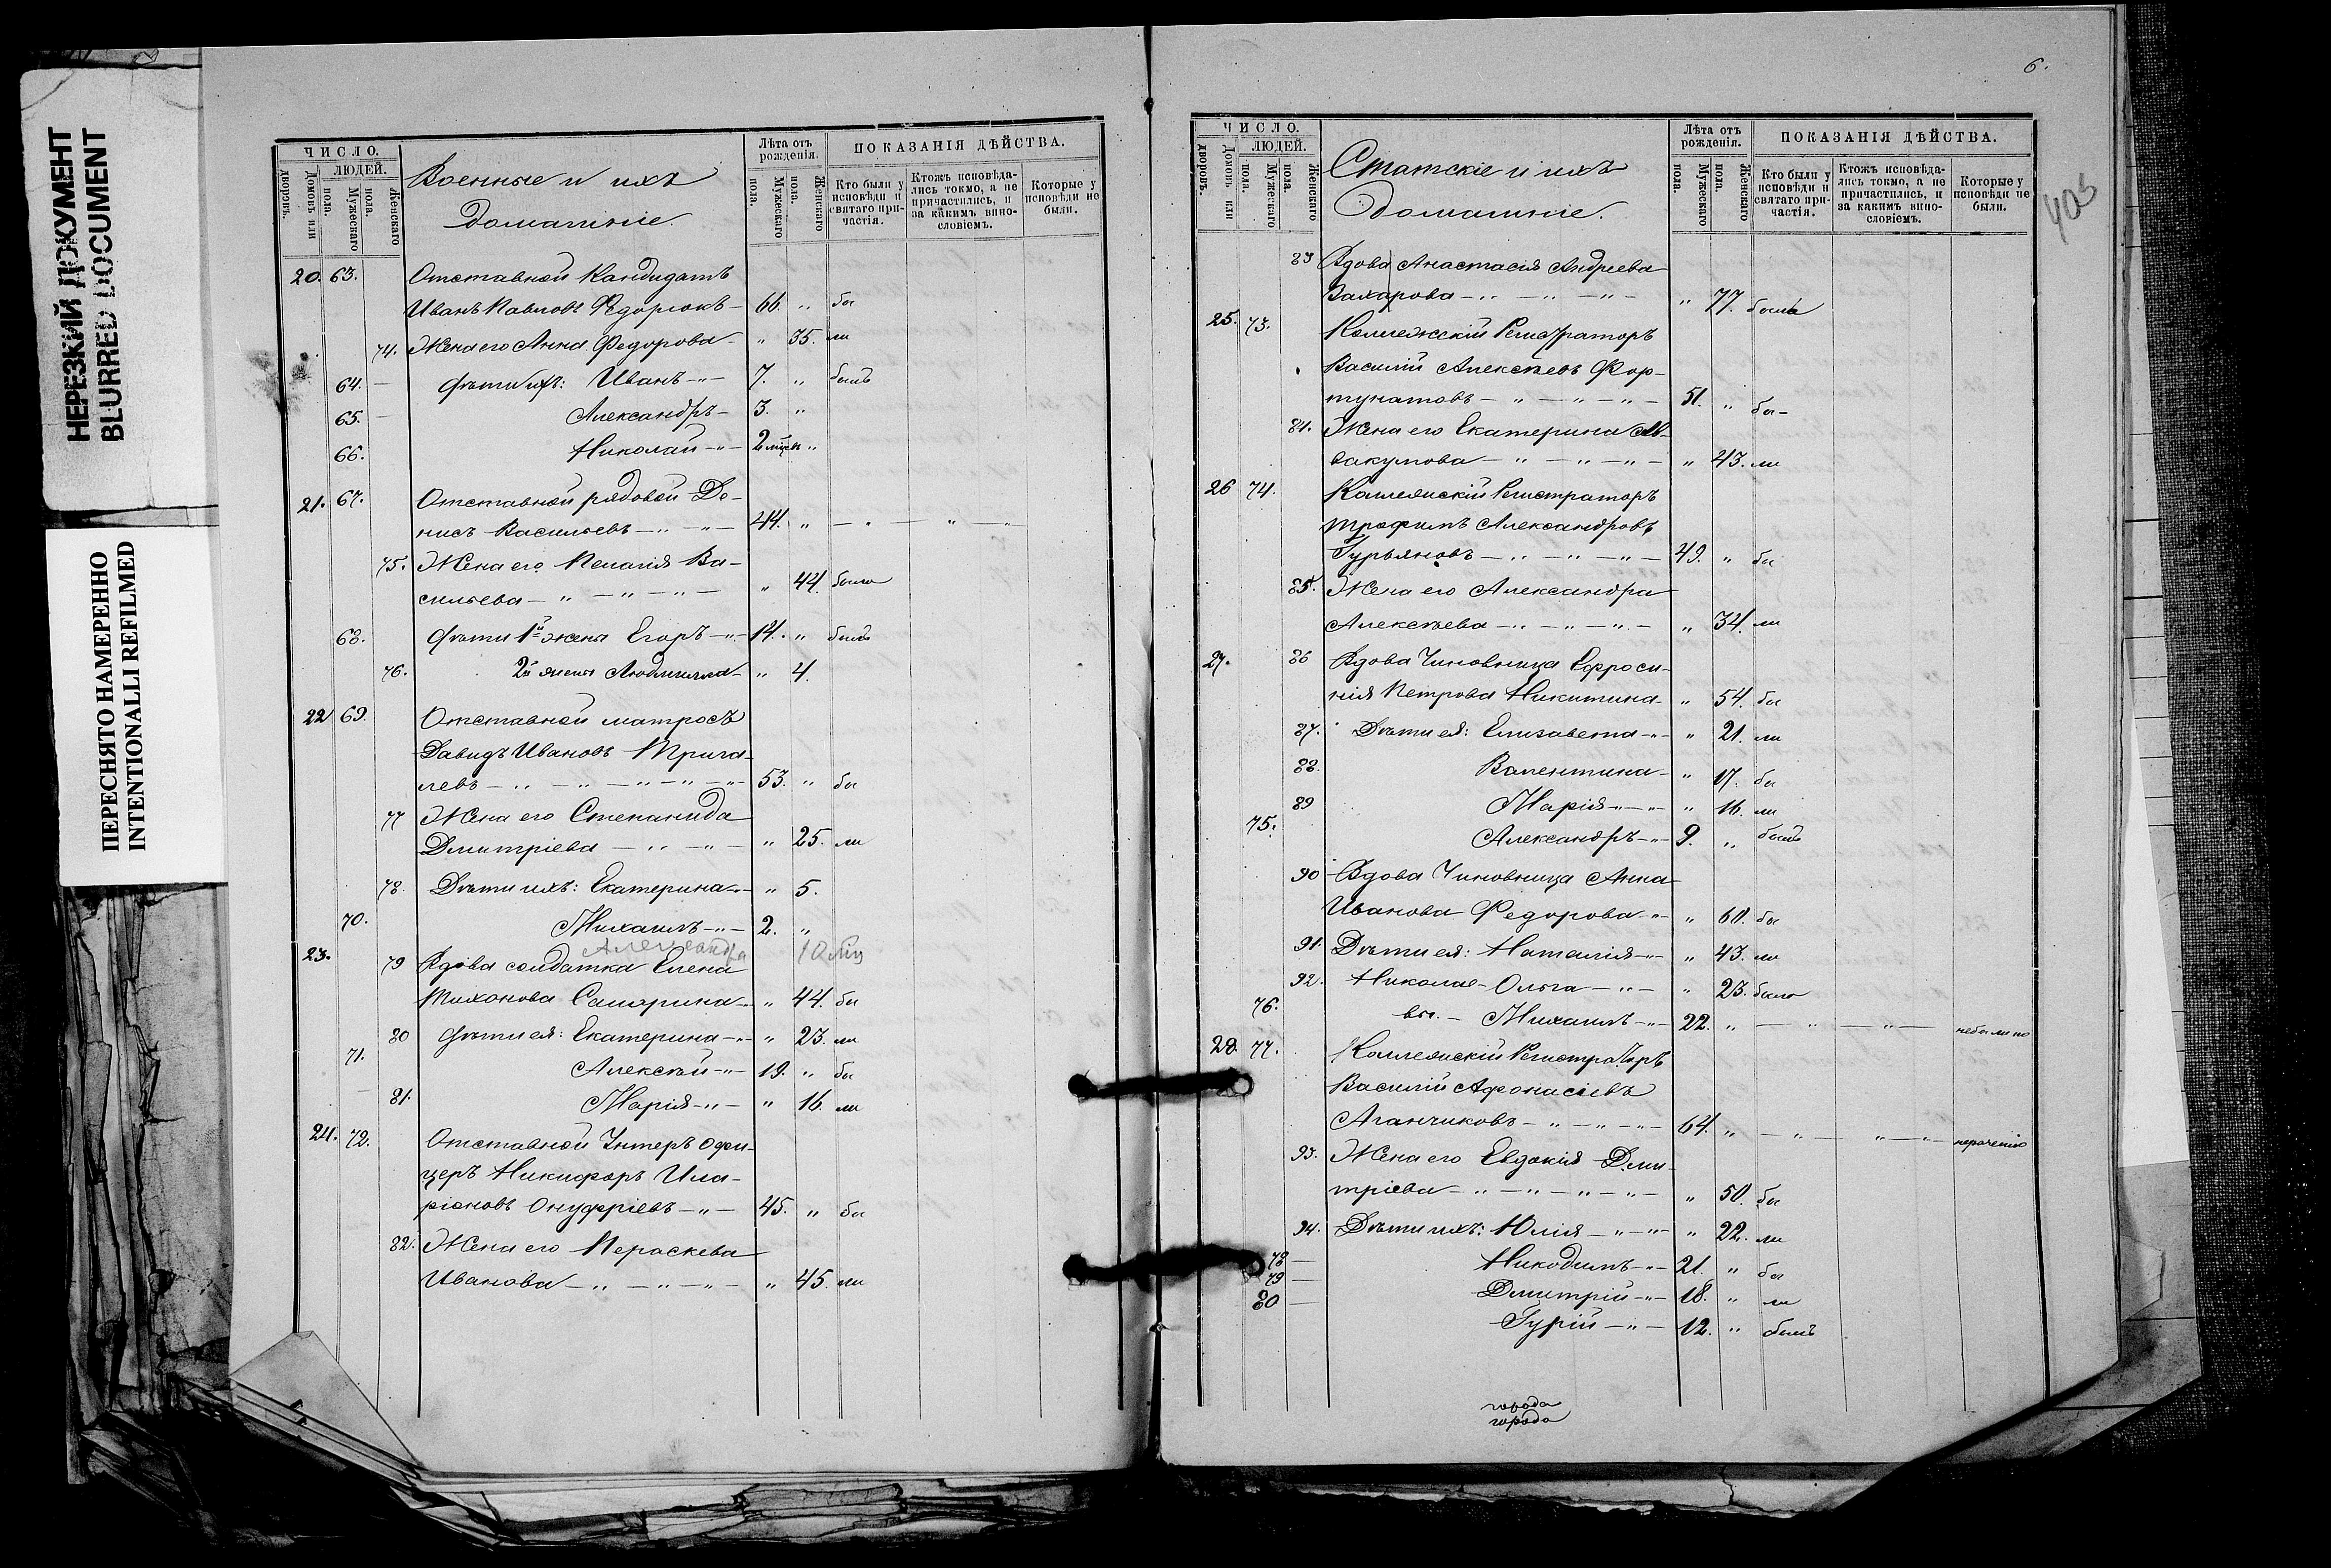 НЕРЕЗКИЙ ДОКУМЕНТ
BLURRED DOCUMENT
ПЕРЕСНЯТО НАМЕРЕННО
INTENTIONALLI REFILMED
ЧИСЛО.
ЛЮДЕЙ.
Домовъ или дворовъ.
Мужескаго пола.
Женскаго пола.
Военные и ихъ
домашніе.
Лѣта отъ рожденія.
Мужескаго пола.
Женскаго пола.
ПОКАЗАНІЯ ДѢЙСТВА.
Кто были у исповѣди и святаго причастія.
Ктожъ исповѣдались токмо, а не причастились, и за какимъ винословіемъ.
Которые у исповѣди не были.
20. 63. Отставной Кандидатъ
Иванъ Павловъ Федорюкъ 66. " бы
74. Жена его Анна Федорова " 35. ли
64. Дѣти ихъ: Иванъ 7. " былъ
65. Александръ 3. "
66. Николай 2 мѣся "
21. 67. Отставной рядовой Де-
нисъ Васильевъ 44. "
75. Жена его Пелагія Ва-
сильева " 44. была
68. Дѣти 1й жены Егоръ 14. " былъ
76. 2й жены Людмила " 4.
22 69. Отставной матросъ
Давидъ Ивановъ Трига-
левъ 53. " бы
77 Жена его Степанида
Дмитріева " 25. ли
78. Дѣти ихъ: Екатерина " 5.
70. Михаилъ 2. "
Александра 10 мѣс
23. 79 Вдова солдатка Елена
Тихонова Самарина " 44. бы
80 Дѣти ея: Екатерина " 23. ли
71. Алексѣй 19. " бы
81. Марія " 16. ли
24. 72. Отставной Унтеръ офи-
церъ Никифоръ Ила-
ріоновъ Онуфріевъ 45. " бы
82. Жена его Параскева
Иванова " 45. ли
6.
403
ЧИСЛО.
ЛЮДЕЙ.
Домовъ или дворовъ.
Мужескаго пола.
Женскаго пола.
Статскіе и ихъ
домашніе.
Лѣта отъ рожденія.
Мужескаго пола.
Женскаго пола.
ПОКАЗАНІЯ ДѢЙСТВА.
Кто были у исповѣди и святаго причастія.
Ктожъ исповѣдались токмо, а не причастились, и за какимъ винословіемъ.
Которые у исповѣди не были.
83 Вдова Анастасія Андреева
Захарова " 77. была
25. 73. Коллежскій Регистраторъ
Василій Алексѣевъ Фор-
тунатовъ 51. " бы-
84. Жена его Екатерина Ав-
вакумова " 43. ли
26 74. Коллежскій Регистраторъ
Трофимъ Александровъ
Гурьяновъ 49. " бы
85. Жена его Александра
Алексѣева " 34. ли
27. 86 Вдова Чиновница Ефроси-
нія Петрова Никитина " 54. бы
87. Дѣти ея: Елизавета " 21. ли
88. Валентина " 17. бы
89 Марія " 16. ли
75. Александръ 9. " былъ
90 Вдова Чиновница Анна
Иванова Федорова " 60. бы
91. Дѣти ея: Наталія " 43. ли
92. Николае- Ольга " 23. была
76. вы. Михаилъ 22. "
28. 77. Коллежскій Регистраторъ
Василій Афонасіевъ
Аганчиковъ 64. " нераченію
93. Жена его Евдокія Дми-
тріева " 50. бы
94. Дѣти ихъ: Юлія " 22. ли
78 Никодимъ 21. " бы
79 Димитрій 18. " ли
80 Гурій 12. " былъ
города
города